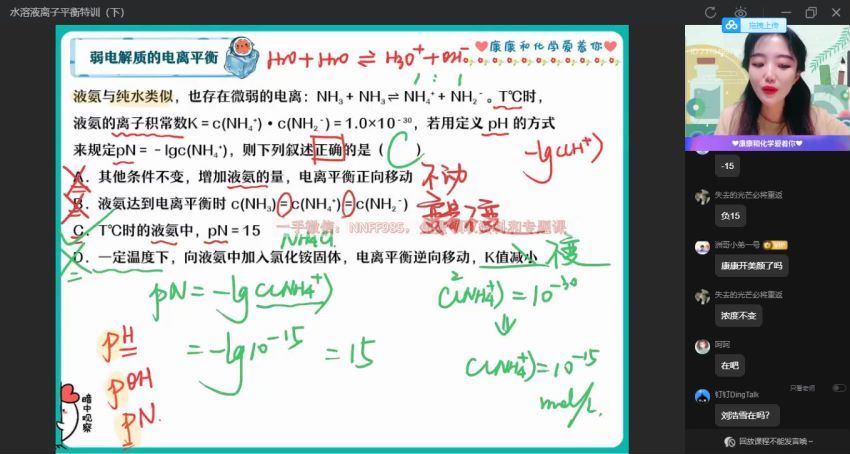 水溶液离子平衡特训（下）
拖拽上传
弱电解质的电离平衡
H₂O + H₂O ⇌ H₃O⁺ + OH⁻
1 : 1
❤康康和化学爱着你❤
液氨与纯水类似，也存在微弱的电离：NH₃ + NH₃ ⇌ NH₄⁺ + NH₂⁻。T℃时，
液氨的离子积常数K = c(NH₄⁺)・c(NH₂⁻) = 1.0×10⁻³⁰，若用定义 pH 的方式
来规定pN = －lgc(NH₄⁺)，则下列叙述正确的是（ C ）
-lgc(H⁺)
A．其他条件不变，增加液氨的量，电离平衡正向移动 不动
B．液氨达到电离平衡时 c(NH₃) = c(NH₄⁺) = c(NH₂⁻)
C．T℃时的液氨中，pN = 15
一手微信：NNFF985，
科和专题课
NH₄Cl
D．一定温度下，向液氨中加入氯化铵固体，电离平衡逆向移动，K值减小 不变
pN = -lg c(NH₄⁺)
= -lg10⁻¹⁵ = 15
c²(NH₄⁺) = 10⁻³⁰
⇓
c(NH₄⁺) = 10⁻¹⁵
mol/L
pH
pOH
pN.
暗中观察
❤康康和化学爱着你❤
-15
失去的光芒必将重返
负15
洲哥小弟一号
康康开美颜了吗
失去的光芒必将重返
浓度不变
阿阿
在吧
只看老师
钉钉DingTalk
刘浩雪在吗？
回放课程不能发言噢～